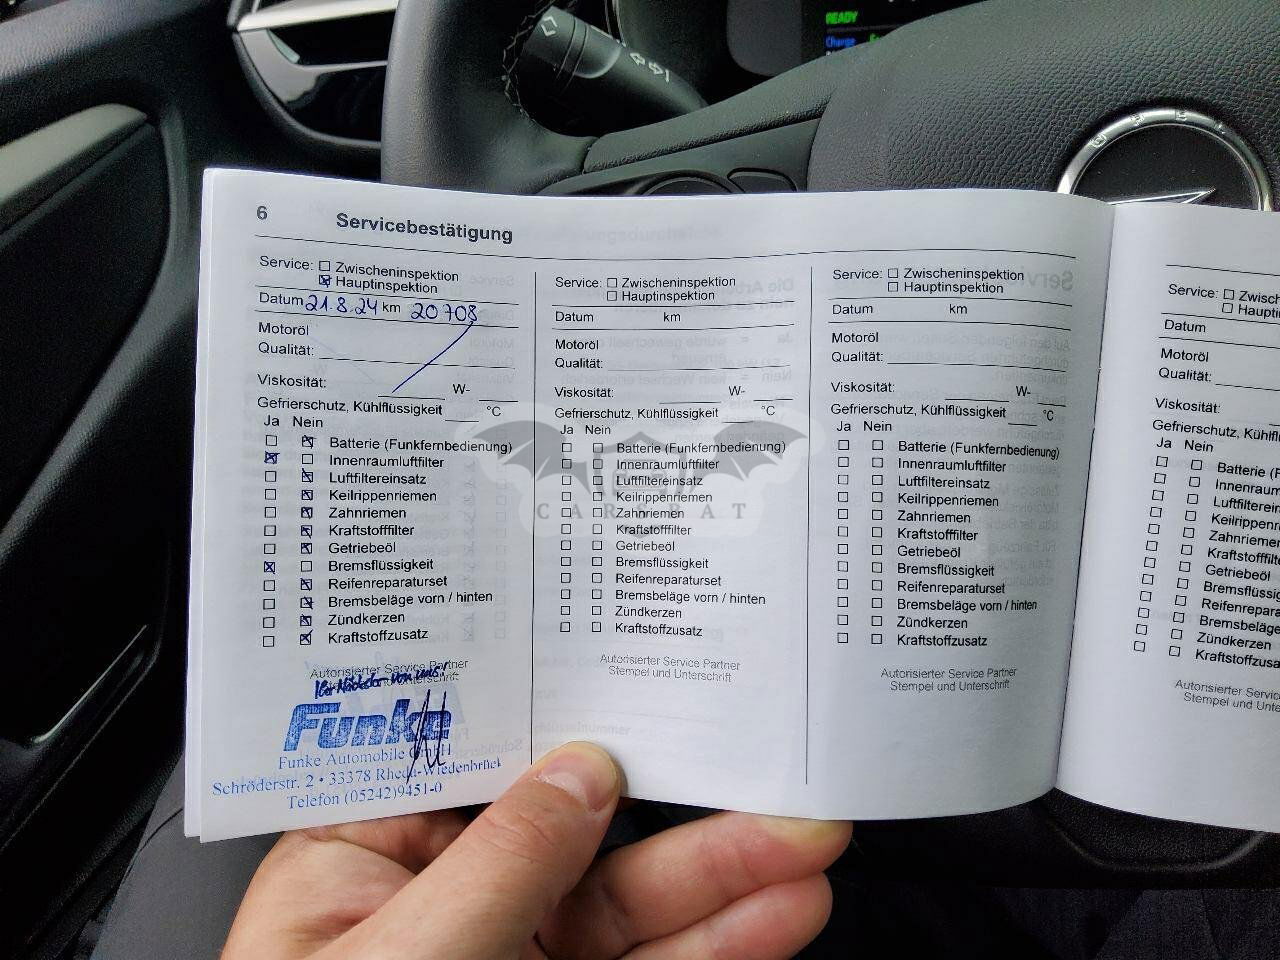 READY
Charge
OPEL
6 Servicebestätigung
Service: ☐ Zwischeninspektion
☒ Hauptinspektion
Datum 21.8.24 km 20708
Motoröl
Qualität:
Viskosität: W-
Gefrierschutz, Kühlflüssigkeit °C
Ja Nein
☐ ☒ Batterie (Funkfernbedienung)
☒ ☐ Innenraumluftfilter
☐ ☒ Luftfiltereinsatz
☐ ☒ Keilrippenriemen
☐ ☒ Zahnriemen
☐ ☒ Kraftstofffilter
☐ ☒ Getriebeöl
☒ ☐ Bremsflüssigkeit
☐ ☒ Reifenreparaturset
☐ ☒ Bremsbeläge vorn / hinten
☐ ☒ Zündkerzen
☐ ☒ Kraftstoffzusatz
Autorisierter Service Partner
Funke
Funke Automobile GmbH
Schröderstr. 2 • 33378 Rheda-Wiedenbrück
Telefon (05242)9451-0
☐ Zwischeninspektion
Service: ☐ Hauptinspektion
Datum km
Motoröl
Qualität:
Viskosität: W-
Gefrierschutz, Kühlflüssigkeit °C
Ja Nein
☐ ☐ Batterie (Funkfernbedienung)
☐ ☐ Innenraumluftfilter
☐ ☐ Luftfiltereinsatz
☐ ☐ Keilrippenriemen
☐ ☐ Zahnriemen
☐ ☐ Kraftstofffilter
☐ ☐ Getriebeöl
☐ ☐ Bremsflüssigkeit
☐ ☐ Reifenreparaturset
☐ ☐ Bremsbeläge vorn / hinten
☐ ☐ Zündkerzen
☐ ☐ Kraftstoffzusatz
Autorisierter Service Partner
Stempel und Unterschrift
Service: ☐ Zwischeninspektion
☐ Hauptinspektion
Datum km
Motoröl
Qualität:
Viskosität: W-
Gefrierschutz, Kühlflüssigkeit °C
Ja Nein
☐ ☐ Batterie (Funkfernbedienung)
☐ ☐ Innenraumluftfilter
☐ ☐ Luftfiltereinsatz
☐ ☐ Keilrippenriemen
☐ ☐ Zahnriemen
☐ ☐ Kraftstofffilter
☐ ☐ Getriebeöl
☐ ☐ Bremsflüssigkeit
☐ ☐ Reifenreparaturset
☐ ☐ Bremsbeläge vorn / hinten
☐ ☐ Zündkerzen
☐ ☐ Kraftstoffzusatz
Autorisierter Service Partner
Stempel und Unterschrift
Service: ☐ Zwisch
☐ Haupti
Datum
Motoröl
Qualität:
Viskosität:
Gefrierschutz, Kühlfl
Ja Nein
☐ ☐ Batterie (F
☐ ☐ Innenraum
☐ ☐ Luftfilterein
☐ ☐ Keilrippenri
☐ ☐ Zahnriemen
☐ ☐ Kraftstofffilt
☐ ☐ Getriebeöl
☐ ☐ Bremsflüssig
☐ ☐ Reifenrepara
☐ ☐ Bremsbeläge
☐ ☐ Zündkerzen
☐ ☐ Kraftstoffzusa
Autorisierter Servi
Stempel und Unte
CARSBAT